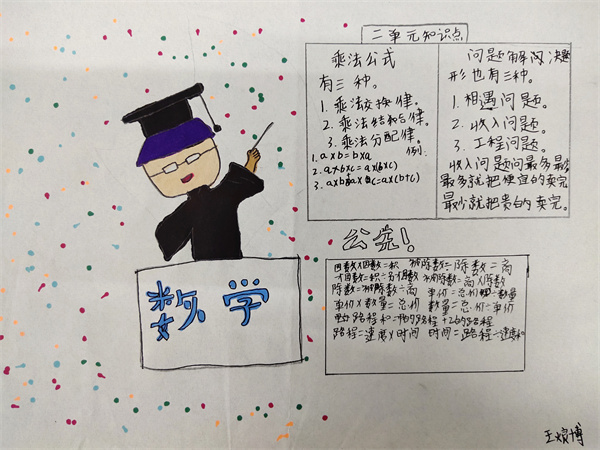 二单元知识点
乘法公式
有三种。
1. 乘法交换律。
2. 乘法结合律。
3. 乘法分配律。
例:
1. a×b=b×a
2. a×b×c=a×(b×c)
3. a×b+a×c=a×(b+c)
问题解决题
形也有三种。
1. 相遇问题。
2. 收入问题。
3. 工程问题。
收入问题问最多最少
最多就把便宜的卖完
最少就把贵的卖完。
公式!
因数×因数=积 被除数÷除数=商
因数=积÷另个因数 被除数=商×除数
除数=被除数÷商 单价=总价÷数量
单价×数量=总价 数量=总价÷单价
路程和=的路程+的路程
路程=速度×时间 时间=路程÷速度和
数学
王煜博